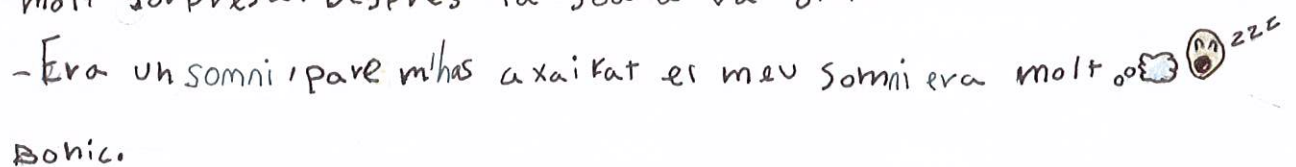 -Era un somni, pare m'has axaikat el meu somni era molt zzz
Bonic.